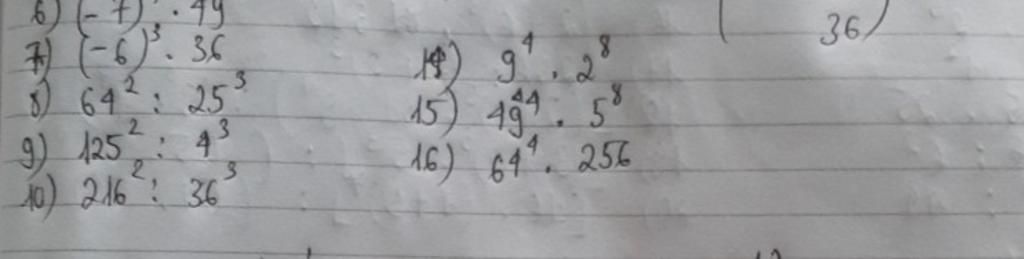 6) (-7) . 49
7) (-6)³ . 36
8) 64² : 25³
9) 125² : 4³
10) 216² : 36³
36)
14) 9⁴ . 2⁸
15) 49⁴ . 5⁸
16) 64⁴ . 256